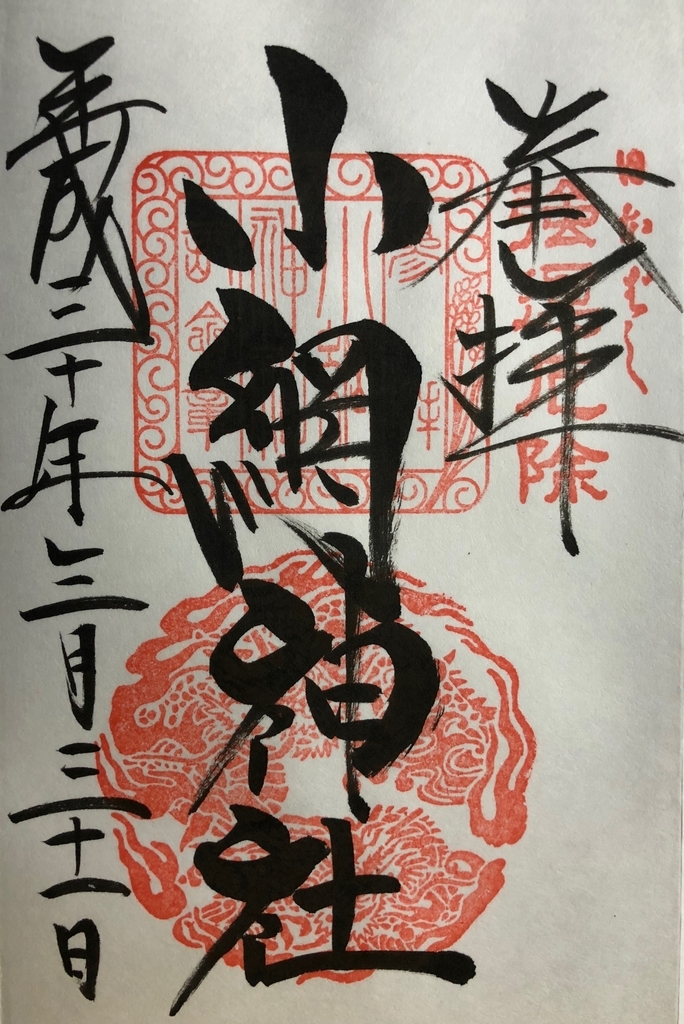 奉拝
強運厄除
小網神社
平成三十年三月三十一日